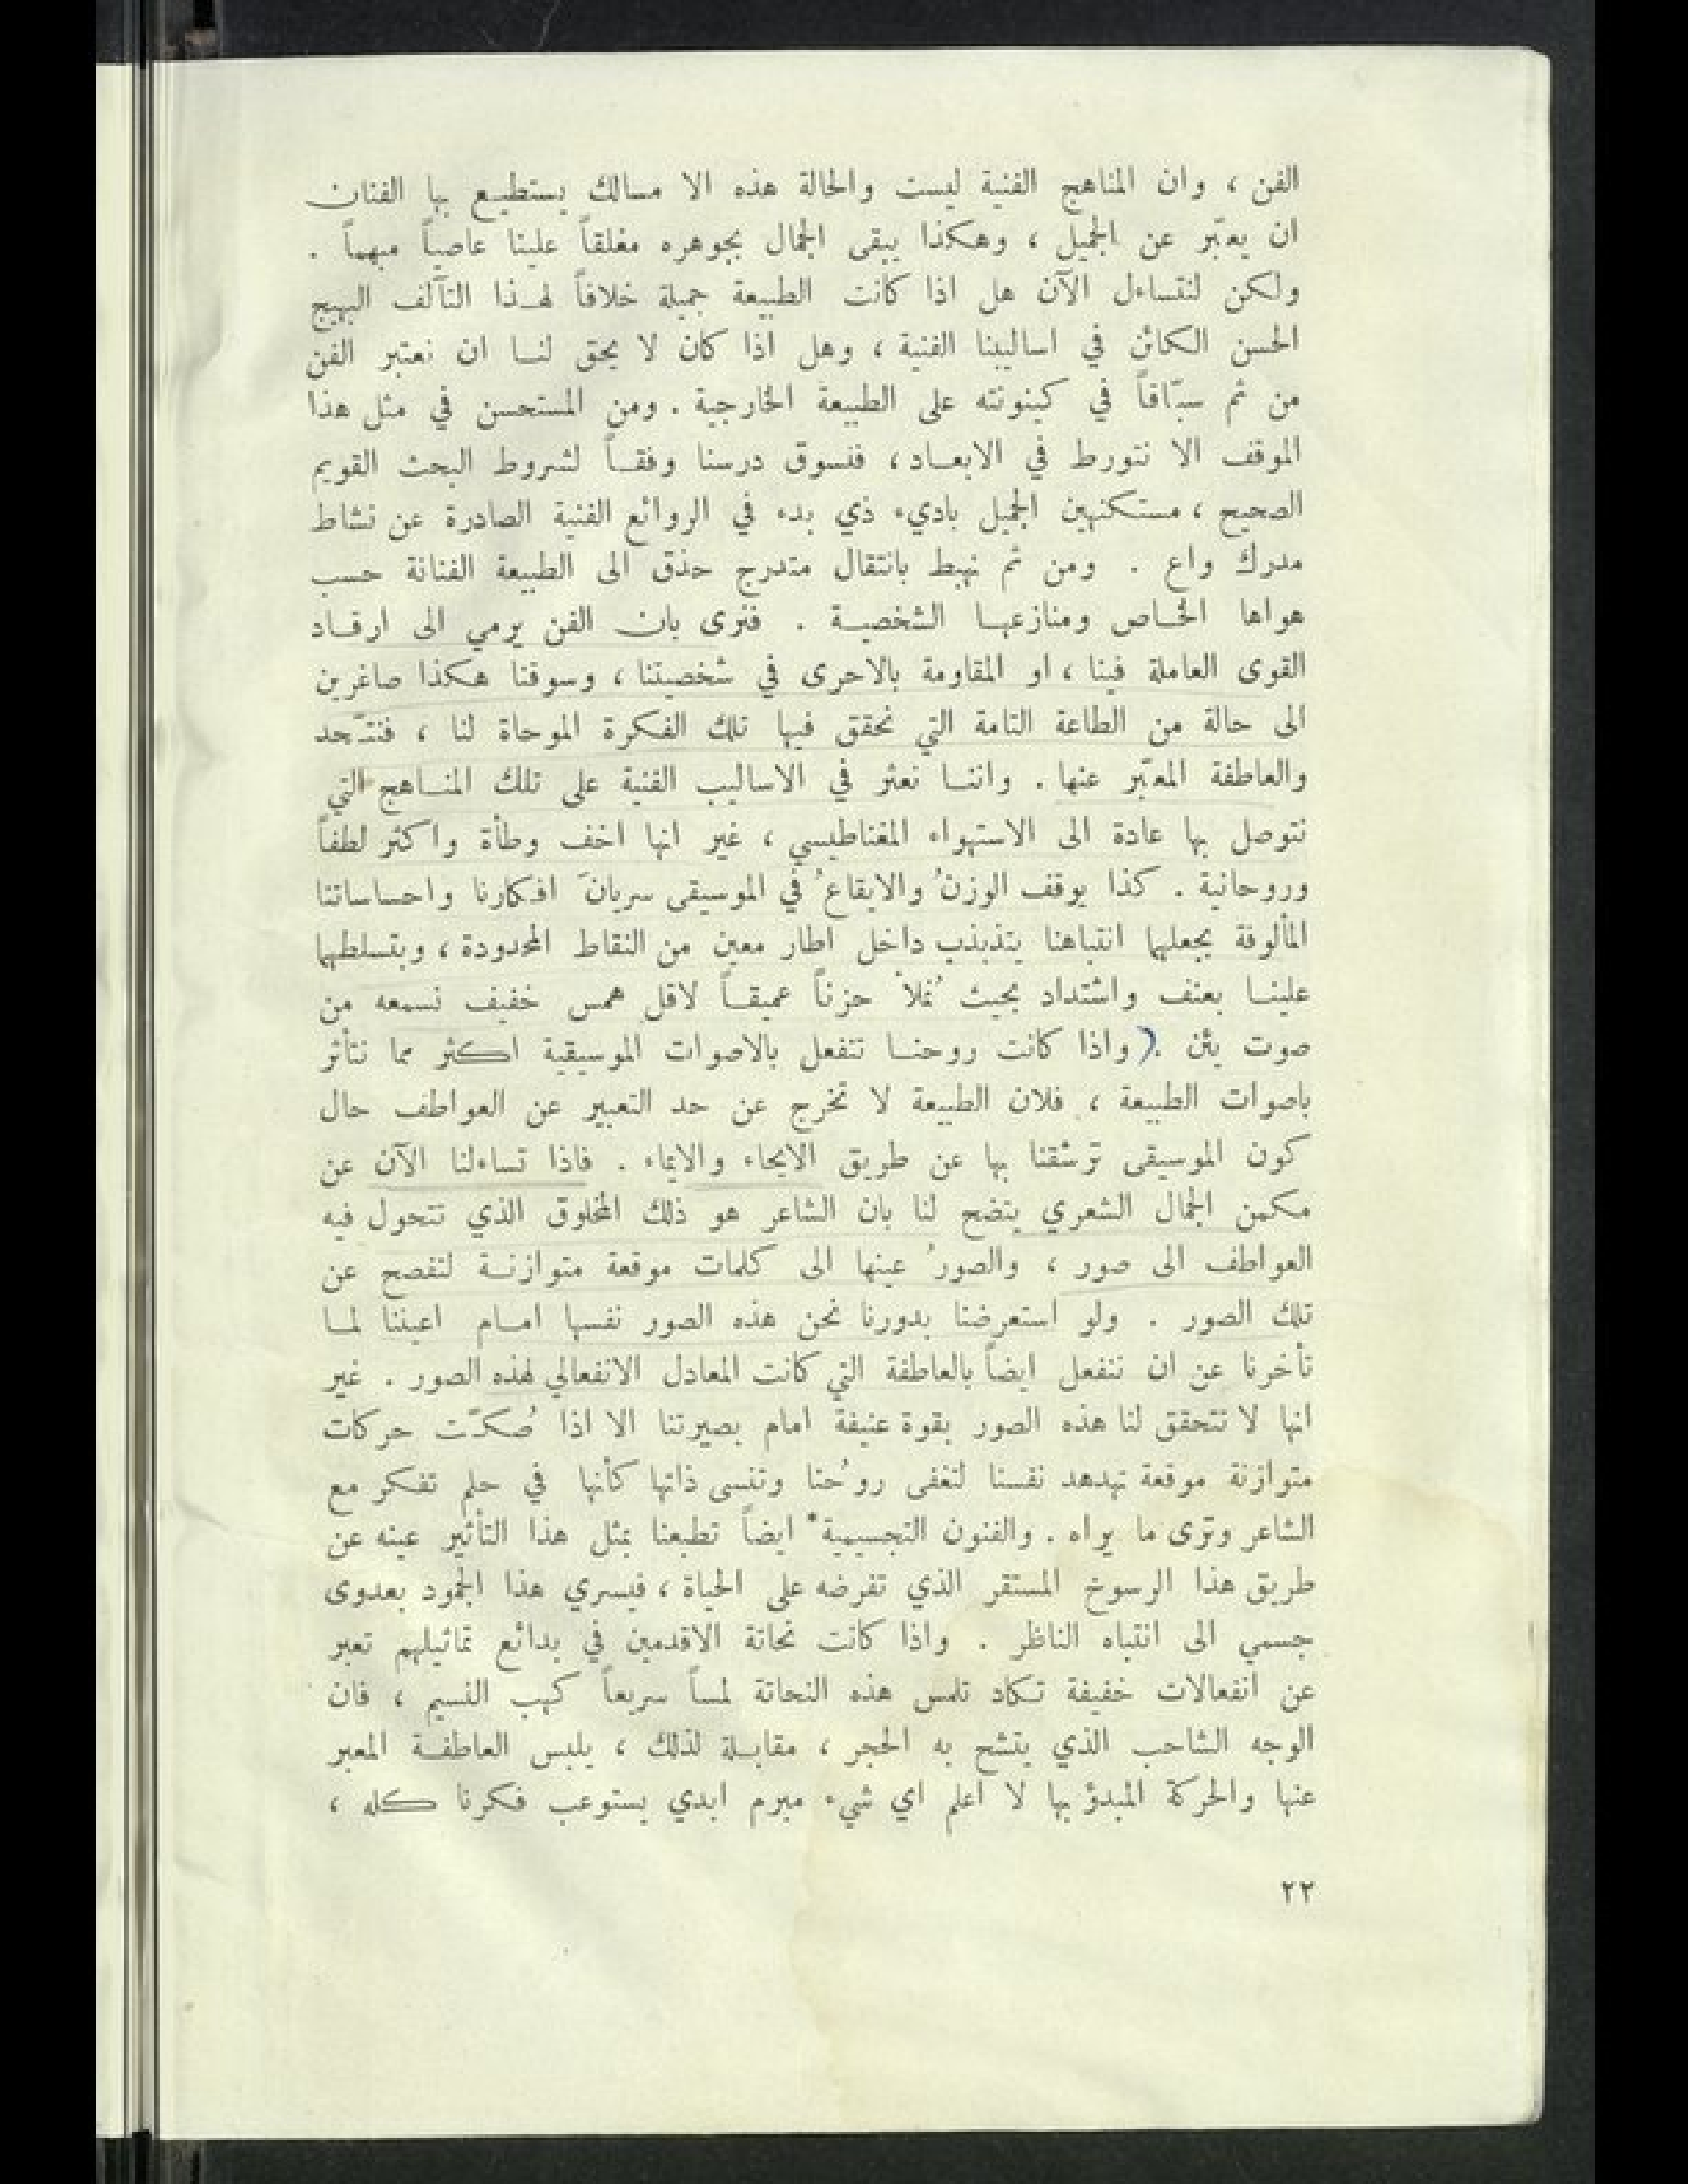 الفن ، وان المناهج الفنية ليست والحالة هذه الا مسالك يستطيع بها الفنان
ان يعبّر عن الجميل ، وهكذا يبقى الجمال بجوهره مغلقاً علينا عاصياً مبهماً .
ولكن لنتساءل الآن هل اذا كانت الطبيعة جميلة خلافاً لهذا التآلف البهيج
الحسن الكائن في اساليبنا الفنية ، وهل اذا كان لا يحق لنا ان نعتبر الفن
من ثم سبّاقاً في كينونته على الطبيعة الخارجية . ومن المستحسن في مثل هذا
الموقف الا نتورط في الابعاد ، فنسوق درسنا وفقاً لشروط البحث القويم
الصحيح ، مستكنهين الجميل باديء ذي بدء في الروائع الفنية الصادرة عن نشاط
مدرك واع . ومن ثم نهبط بانتقال متدرج حذق الى الطبيعة الفنانة حسب
هواها الخاص ومنازعها الشخصية . فنرى بان الفن يرمي الى ارقاد
القوى العاملة فينا ، او المقاومة بالاحرى في شخصيتنا ، وسوقنا هكذا صاغرين
الى حالة من الطاعة التامة التي نحقق فيها تلك الفكرة الموحاة لنا ، فنتّحد
والعاطفة المعبّر عنها . واننا نعثر في الاساليب الفنية على تلك المناهج التي
نتوصل بها عادة الى الاستهواء المغناطيسي ، غير انها اخف وطأة واكثر لطفاً
وروحانية . كذا يوقف الوزنُ والايقاعُ في الموسيقى سريانَ افكارنا واحساساتنا
المألوفة بجعلهما انتباهنا يتذبذب داخل اطار معين من النقاط المحدودة ، وبتسلطهما
علينا بعنف واشتداد بحيث نُملأ حزناً عميقاً لاقل همس خفيف نسمعه من
صوت يئن . واذا كانت روحنا تنفعل بالاصوات الموسيقية اكثر مما نتأثر
باصوات الطبيعة ، فلان الطبيعة لا تخرج عن حد التعبير عن العواطف حال
كون الموسيقى ترشقنا بها عن طريق الايحاء والايماء . فاذا تساءلنا الآن عن
مكمن الجمال الشعري يتضح لنا بان الشاعر هو ذلك المخلوق الذي تتحول فيه
العواطف الى صور ، والصورُ عينها الى كلمات موقعة متوازنة لتفصح عن
تلك الصور . ولو استعرضنا بدورنا نحن هذه الصور نفسها امام اعيننا لما
تأخرنا عن ان ننفعل ايضاً بالعاطفة التي كانت المعادل الانفعالي لهذه الصور . غير
انها لا تتحقق لنا هذه الصور بقوة عنيفة امام بصيرتنا الا اذا صُكّت حركات
متوازنة موقعة تهدهد نفسنا لتغفى روحُنا وتنسى ذاتها كأنها في حلم تفكر مع
الشاعر وترى ما يراه . والفنون التجسيمية* ايضاً تطبعنا بمثل هذا التأثير عينه عن
طريق هذا الرسوخ المستقر الذي تفرضه على الحياة ، فيسري هذا الجمود بعدوى
جسمي الى انتباه الناظر . واذا كانت نحاتة الاقدمين في بدائع تماثيلهم تعبر
عن انفعالات خفيفة تكاد تلمس هذه النحاتة لمساً سريعاً كهب النسيم ، فان
الوجه الشاحب الذي يتشح به الحجر ، مقابلة لذلك ، يلبس العاطفة المعبر
عنها والحركة المبدؤ بها لا اعلم اي شيء مبرم ابدي يستوعب فكرنا كله ،
٢٢